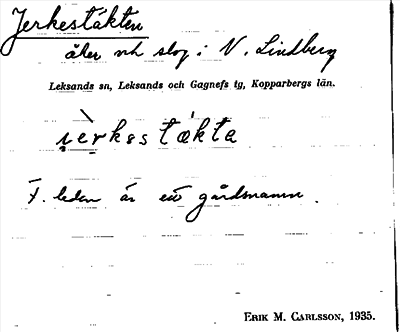 Jerkestäkten
åker och slog i N. Lindberg
Leksands sn, Leksands och Gagnefs tg, Kopparbergs län.
jèrkəstákta
F. leden är ett gårdsnamn.
ERIK M. CARLSSON, 1935.